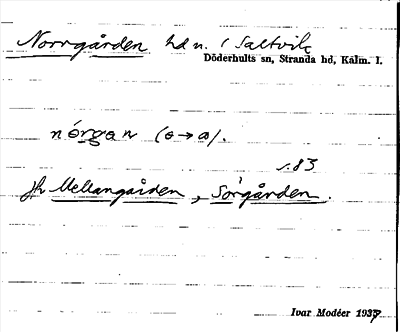 Norrgården hdn. i Saltvik
Döderhults sn, Stranda hd, Kalm. l.
nórgan (o→a).
s.83
jfr Mellangården, Sörgården.
Ivar Modéer 1937